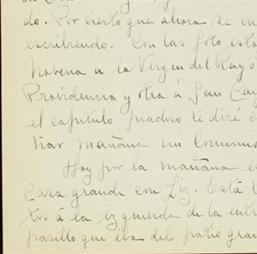 do. Por cierto que ahora se
escribiendo. Con las foto
novena a la Virgen del Rayo
Providencia y otra á San
el capítulo piadoso te diré
mañana un
Hoy por la mañana
Casa grande con Liz. Está
á la izquierda de la
pasillo que iba del patio